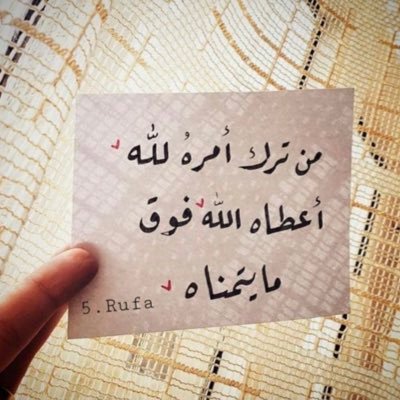 من ترك أمرهُ لله
أعطاه الله فوق
مايتمناه
5.Rufa